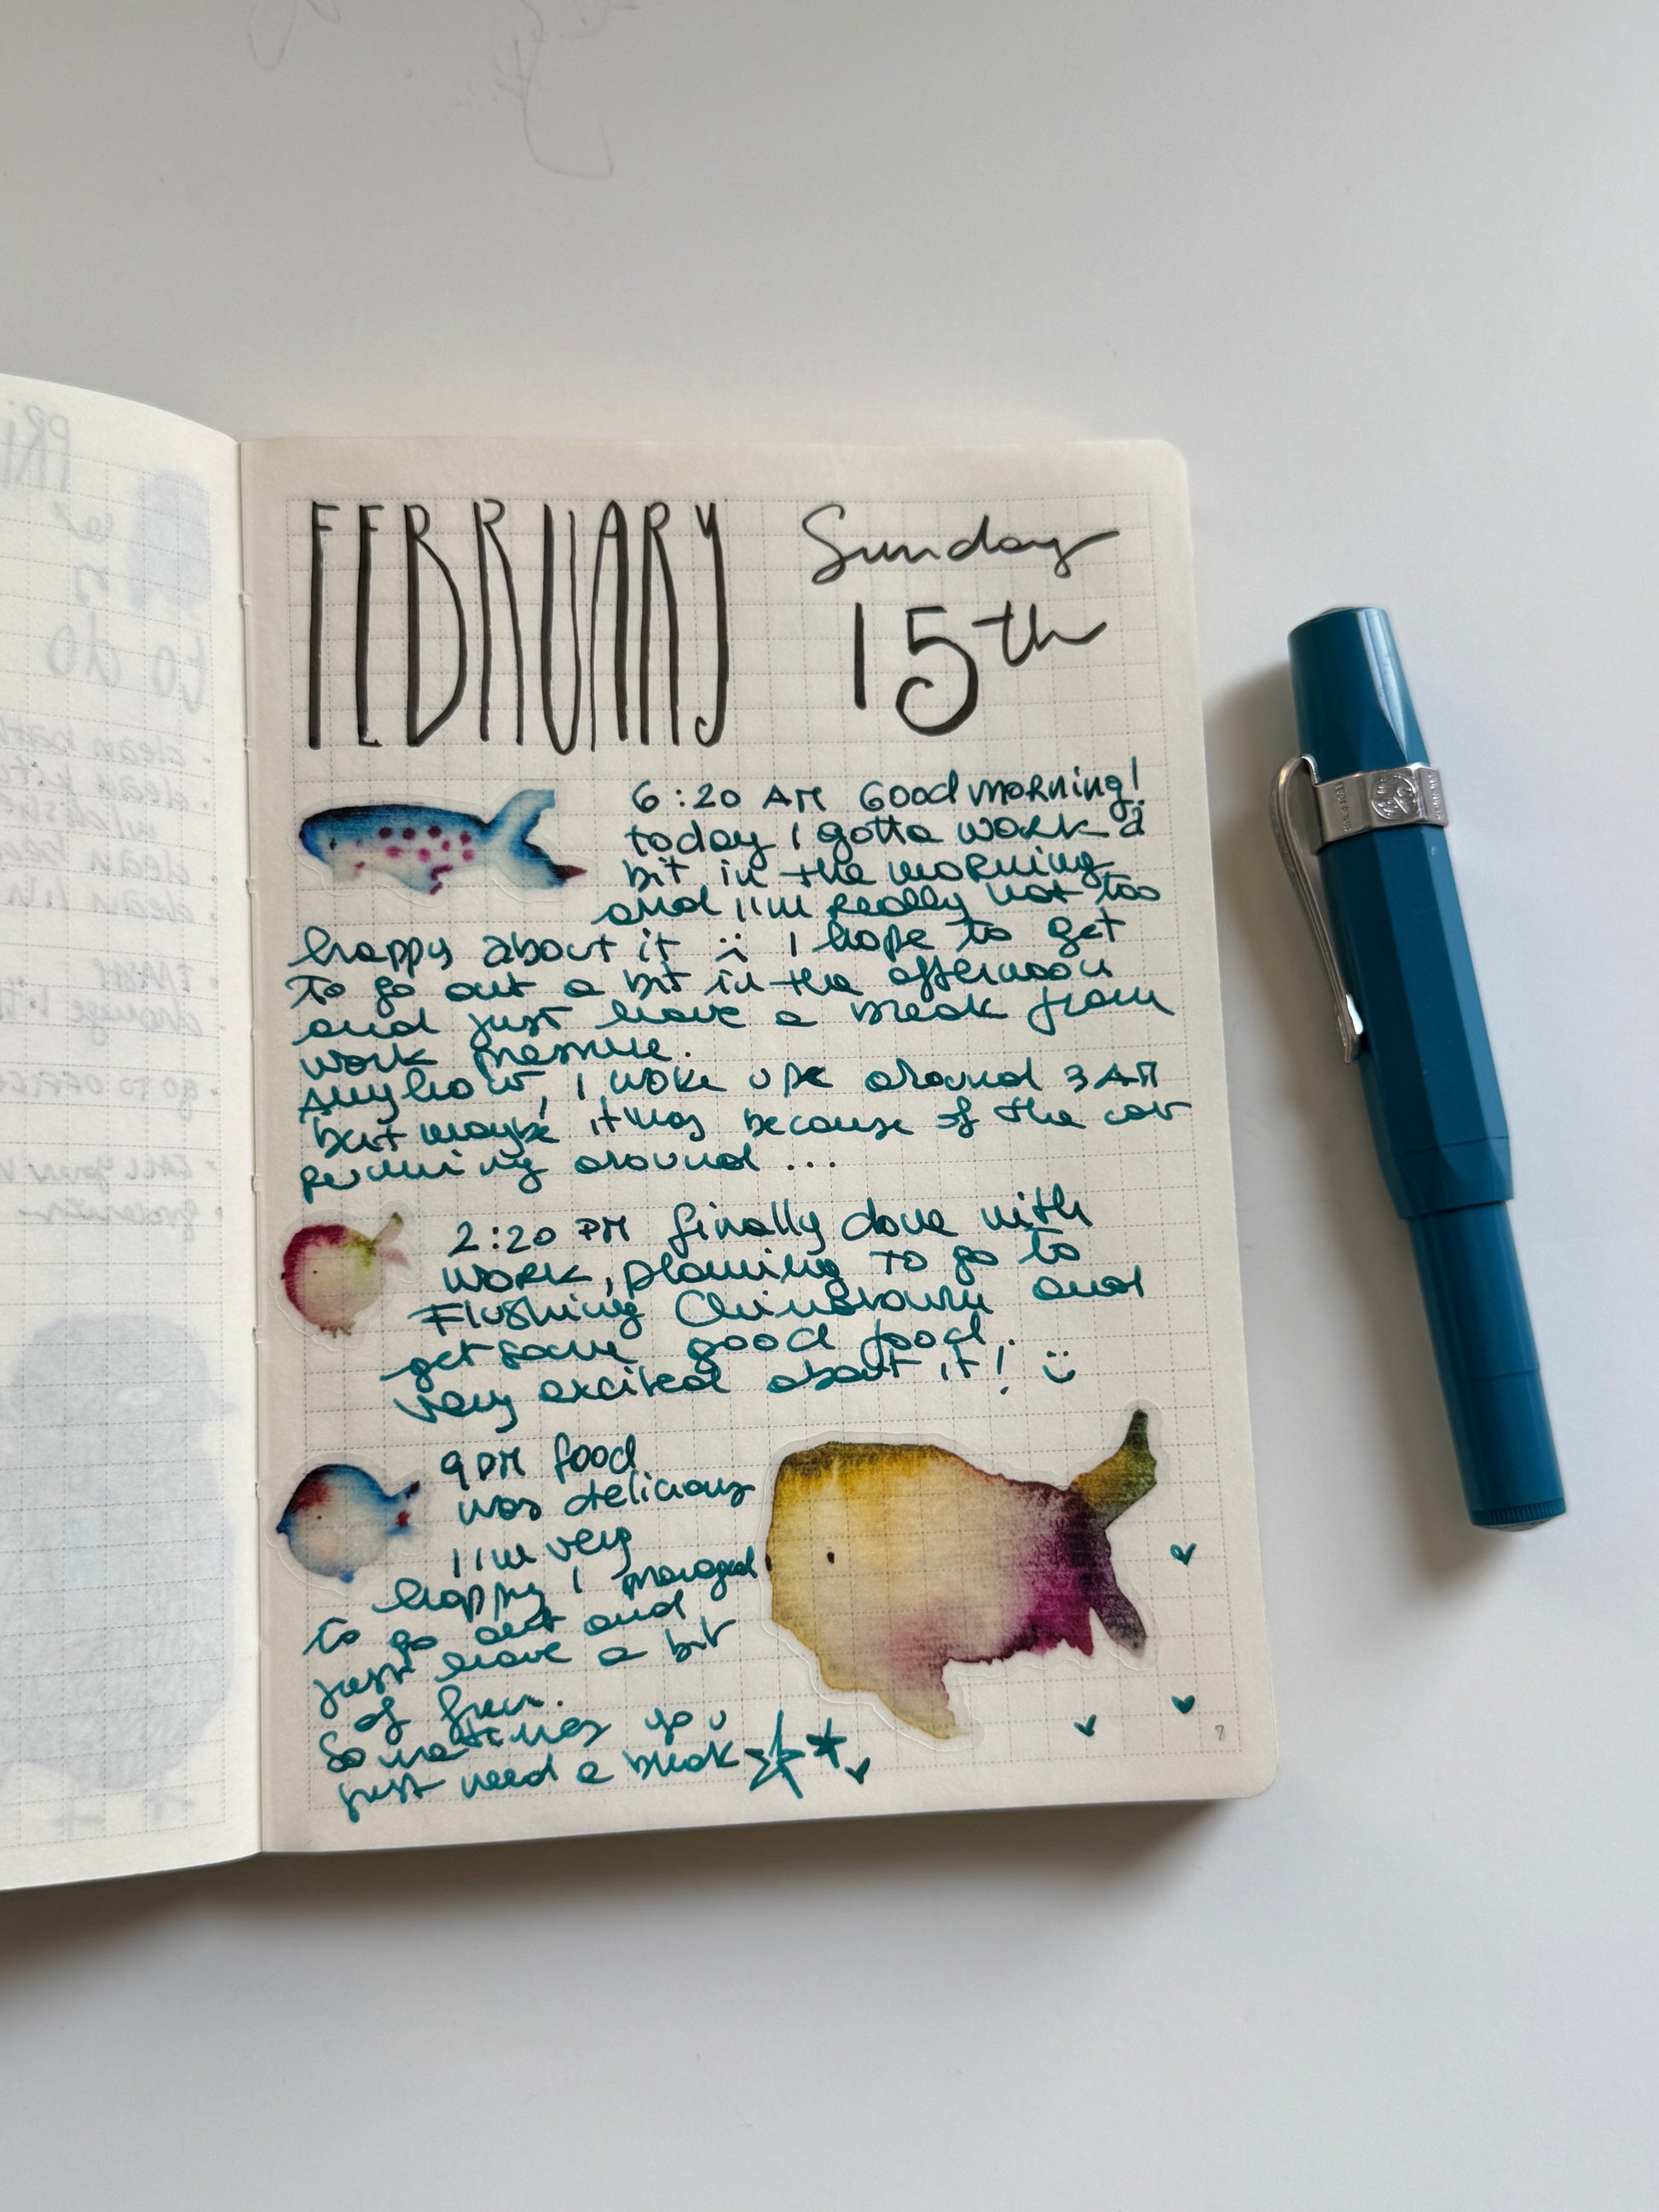 FEBRUARY
Sunday
15th
6:20 AM Good morning!
today I gotta work a
bit in the morning
and I'm really not too
happy about it :( I hope to get
to go out a bit in the afternoon
and just have a break from
work pressure.
Anyhow, I woke up around 3 AM
but maybe it was because of the cat
running around...
2:20 PM finally done with
work, planning to go to
Flushing Chinatown and
get some good food.
very excited about it! :)
9 PM food
was delicious
I'm very
happy I managed
to go out and
just have a bit
of fun.
Sometimes you
just need a break
7